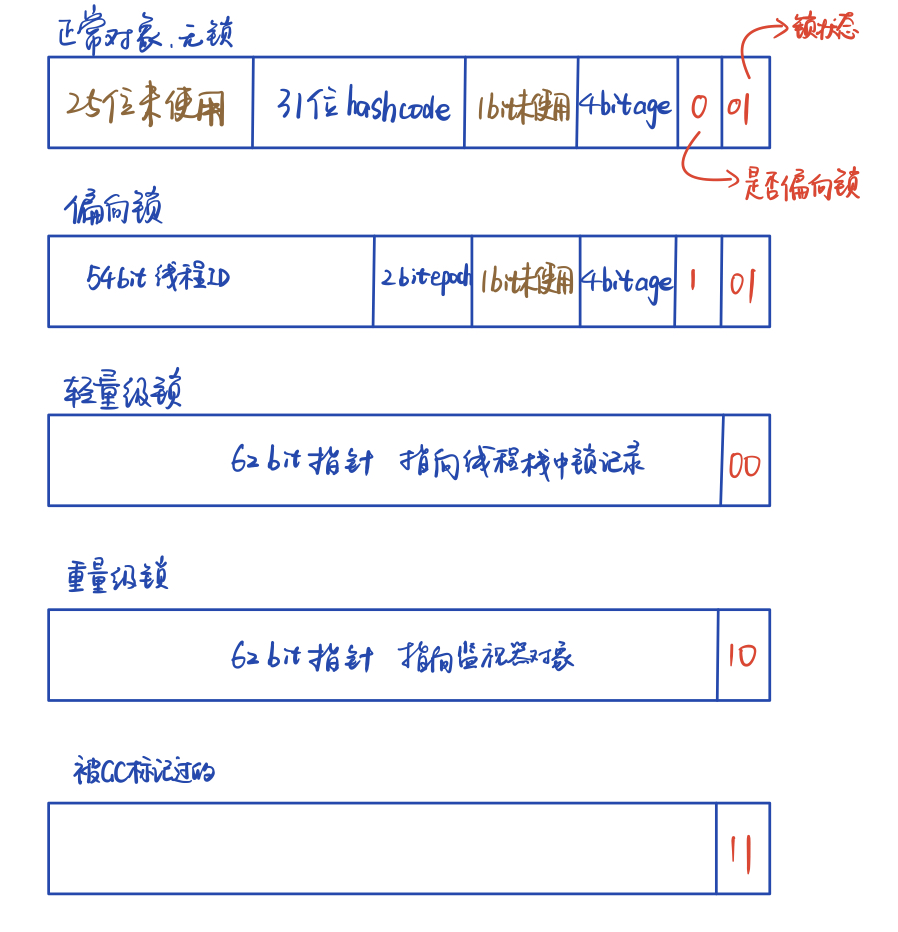 正常对象.无锁
锁状态
25位未使用 31位hashcode 1bit未使用 4bitage 0 01
是否偏向锁
偏向锁
54bit 线程ID 2bitepoch 1bit未使用 4bitage 1 01
轻量级锁
62bit 指针 指向线程栈中锁记录 00
重量级锁
62bit 指针 指向监视器对象 10
被GC标记过的
11